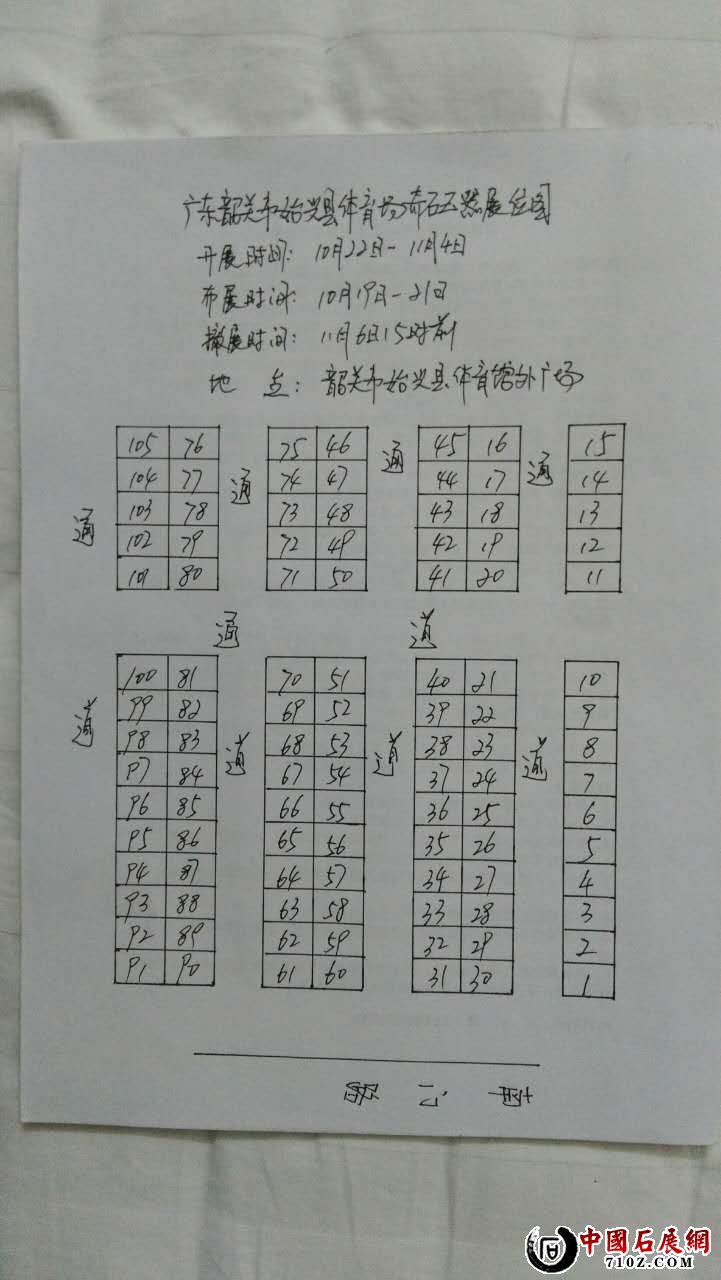 广东韶关市始兴县体育场奇石玉器展位图
开展时间: 10月22日-11月4日
布展时间: 10月19日-21日
撤展时间: 11月6日15时前
地 点: 韶关市始兴县体育馆外广场
105 76 75 46 45 16 15
104 77 74 47 44 17 14
103 78 73 48 43 18 13
102 79 72 49 42 19 12
101 80 71 50 41 20 11
通 通 通 通
通 道
100 81 70 51 40 21 10
99 82 69 52 39 22 9
98 83 68 53 38 23 8
97 84 67 54 37 24 7
96 85 66 55 36 25 6
95 86 65 56 35 26 5
94 87 64 57 34 27 4
93 88 63 58 33 28 3
92 89 62 59 32 29 2
91 90 61 60 31 30 1
道 道 道 道
公 路
中國石展網
71OZ.COM